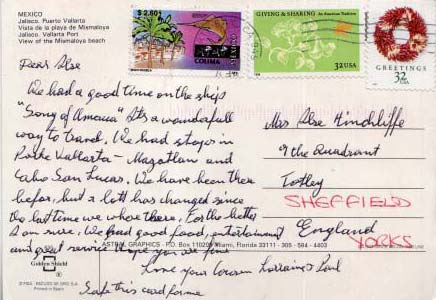 MEXICO
Jalisco. Puerto Vallarta
Vista de la playa de Mismaloya
Jalisco. Vallarta Port
View of the Mismaloya beach
$2.60
COLIMA
MEXICO
GIVING & SHARING An American Tradition
32USA
GREETINGS
32
USA
Dear Ilse
We had a good time on the ship
"Song of America" Its a wonderfull
way to travel. We had stops in
Porte Vallarta - Magatlan and
Cabo San Lucas. We have been there
befor, but a lott has changed since
the last time we where there. For the better
I am sure. We had good food, entertainment
and great service Hope you are fine
Love your Lorraine & Paul
Safe this card for me
Mrs Ilse Hinchliffe
9 the Quadrant
Totley
SHEFFIELD
England
YORKS
ASTRAL GRAPHICS - P.O. Box 110209 Miami, Florida 33111 - 305 - 584 - 4403
Golden Shield
Printed in Spain